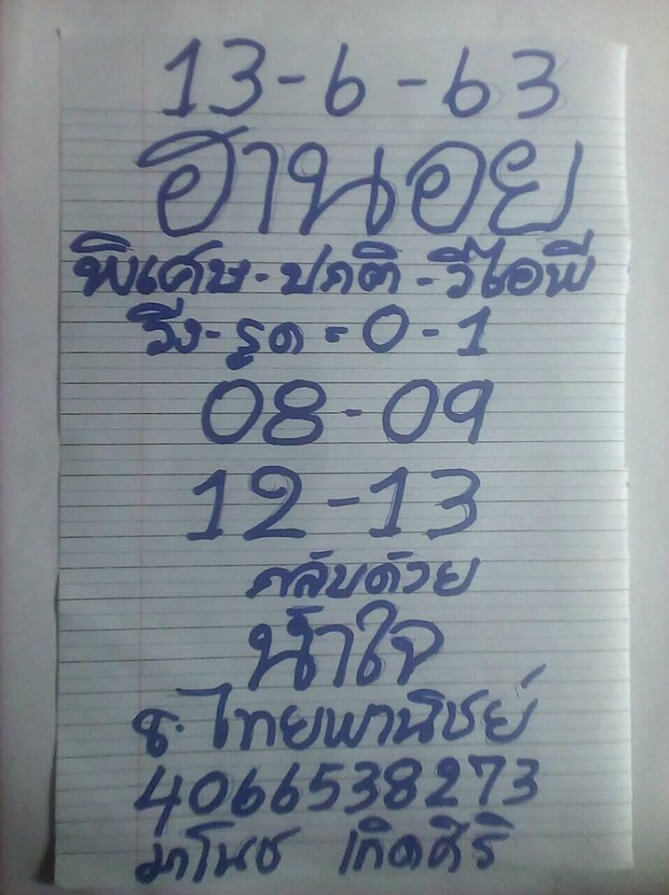 13-6-63
ฮานอย
พิเศษ-ปกติ-วีไอพี
วิ่ง-รูด=0-1
08-09
12-13
กลับด้วย
น้ำใจ
ธ.ไทยพานิชย์
4066538273
มาโนช เกิดศิริ